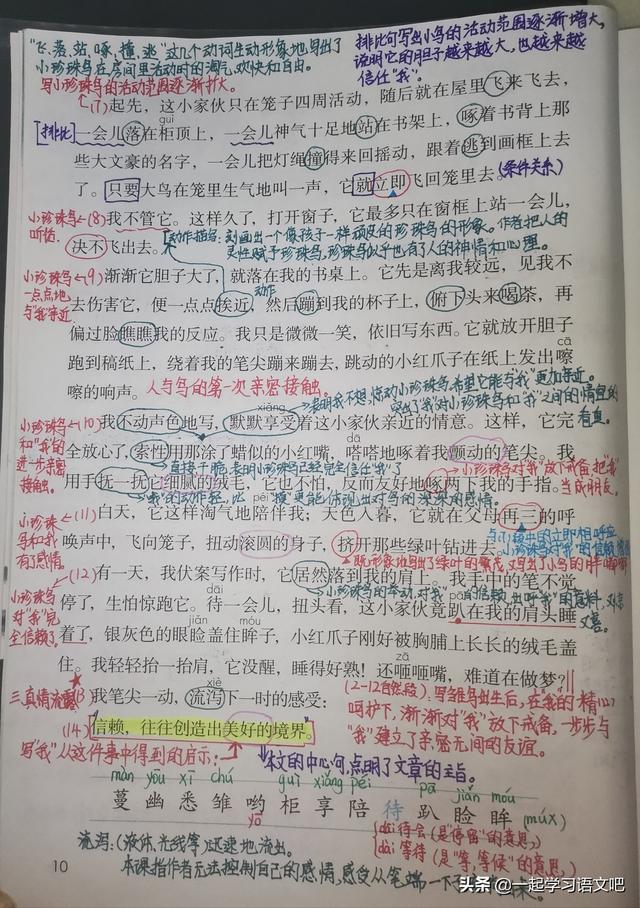 "飞、落、站、啄、撞、逃"这几个动词生动形象地写出了
小珍珠鸟在房间里活动时的淘气、欢快和自由。
排比句写出小鸟的活动范围逐渐增大,
说明它的胆子越来越大,也越来越
信任"我"。
写小珍珠鸟的活动范围逐渐扩大。
(7) 起先,这小家伙只在笼子四周活动,随后就在屋里飞来飞去,
guì
[排比] 一会儿落在柜顶上,一会儿神气十足地站在书架上,啄着书背上那
些大文豪的名字,一会儿把灯绳撞得来回摇动,跟着逃到画框上去
了。只要大鸟在笼里生气地叫一声,它就立即飞回笼里去。(条件关系)
小珍珠鸟听话。
(8) 我不管它。这样久了,打开窗子,它最多只在窗框上站一会儿,
决不飞出去。
动作描写:刻画出一个像孩子一样顽皮的珍珠鸟的形象。作者把人的
灵性赋予珍珠鸟,珍珠鸟似乎也有了人的神情和心理。
小珍珠鸟一点点地与"我"亲近
(9) 渐渐它胆子大了,就落在我的书桌上。它先是离我较远,见我不
动作
去伤害它,便一点点挨近,然后蹦到我的杯子上,俯下头来喝茶,再
偏过脸瞧瞧我的反应。我只是微微一笑,依旧写东西。它就放开胆子
cā
跑到稿纸上,绕着我的笔尖蹦来蹦去,跳动的小红爪子在纸上发出嚓
嚓的响声。人与鸟的第一次亲密接触。
表明我不想惊动小珍珠鸟,希望它能与"我"更加亲近。
xiǎng
小珍珠鸟和"我"的进一步亲密接触。
(10) 我不动声色地写,默默享受着这小家伙亲近的情意。这样,它完
dā
全放心了,索性用那涂了蜡似的小红嘴,嗒嗒地啄着我颤动的笔尖。我
直接干脆,表明小珍珠鸟已经完全信任"我"了
小珍珠鸟对"我"放下戒备,把"我"当成朋友。
用手抚一抚它细腻的绒毛,它也不怕,反而友好地啄两下我的手指。
小珍珠鸟和我有了感情。
(11) 白天,它这样淘气地陪伴我;天色入暮,它就在父母再三的呼
唤声中,飞向笼子,扭动滚圆的身子,挤开那些绿叶钻进去。
(12) 有一天,我伏案写作时,它居然落到我的肩上。我手中的笔不觉
小珍珠鸟对"我"完全信赖了
dāi
pā
停了,生怕惊跑它。待一会儿,扭头看,这小家伙竟趴在我的肩头睡
jiǎn
móu
着了,银灰色的眼睑盖住眸子,小红爪子刚好被胸脯上长长的绒毛盖
zā
住。我轻轻抬一抬肩,它没醒,睡得好熟!还咂咂嘴,难道在做梦?
xiè
三、真情流露 (13) 我笔尖一动,流泻下一时的感受:
(2-12自然段):写雏鸟出生后,在我的精心
呵护下,渐渐对"我"放下戒备,一步步与
"我"建立了亲密无间的友谊。
(14) 信赖,往往创造出美好的境界。
写"我"从这件事中得到的启示:
本文的中心句,点明了文章的主旨。
màn yōu xī chú guì xiǎng péi pā jiǎn móu
蔓 幽 悉 雏 哟 柜 享 陪 待 趴 睑 眸 (mùX)
yō
流泻:(液体、光线等)迅速地流出。
dāi 待会(是"停留"的意思)
dài 等待(是"等,等候"的意思)
10
本课指作者无法控制自己的感情,感受从笔端一下子
头条 @一起学习语文吧